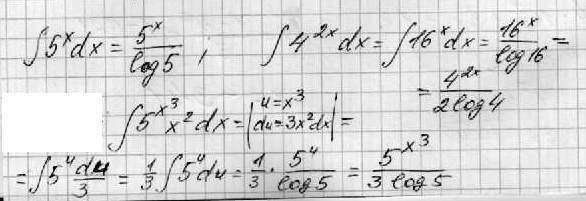 ∫5^x dx = 5^x/log5 ; ∫4^{2x} dx = ∫16^x dx = 16^x/log16 =
= 4^{2x}/2log4
∫5^{x^3} x^2 dx = |u = x^3 du = 3x^2 dx| =
= ∫5^u du/3 = 1/3 ∫5^u du = 1/3 · 5^u/log5 = 5^{x^3}/3log5